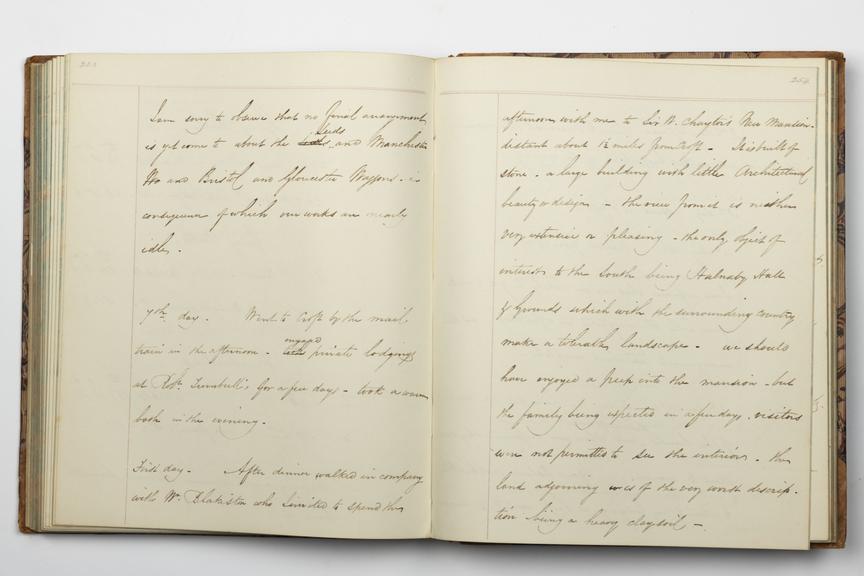 253
I am sorry to observe that no final arrangement
is yet come to about the Leeds and Manchester
and Bristol and Gloucester Waggons - in
consequence of which our works are nearly
idle.
7th. day. Went to Croft by the mail
train in the afternoon - engaged private lodgings
at Robt. Turnbull's for a few days - took a warm
bath in the evening.
First day. After dinner walked in company
with Wm. Blakiston who I invited to spend the
254
afternoon with me to Sir W. Chaytor's New Mansion
distant about 1½ miles from Croft - It is built of
stone - a large building with little Architectural
beauty or design - the view from it is neither
very extensive or pleasing - the only object of
interest to the South being Halnaby Hall
& Grounds which with the surrounding country
make a tolerable landscape - we should
have enjoyed a peep into the mansion - but
the family being expected in a few days, visitors
were not permitted to see the interior. The
land adjoining is of the very worst descrip-
tion being a heavy clay soil -